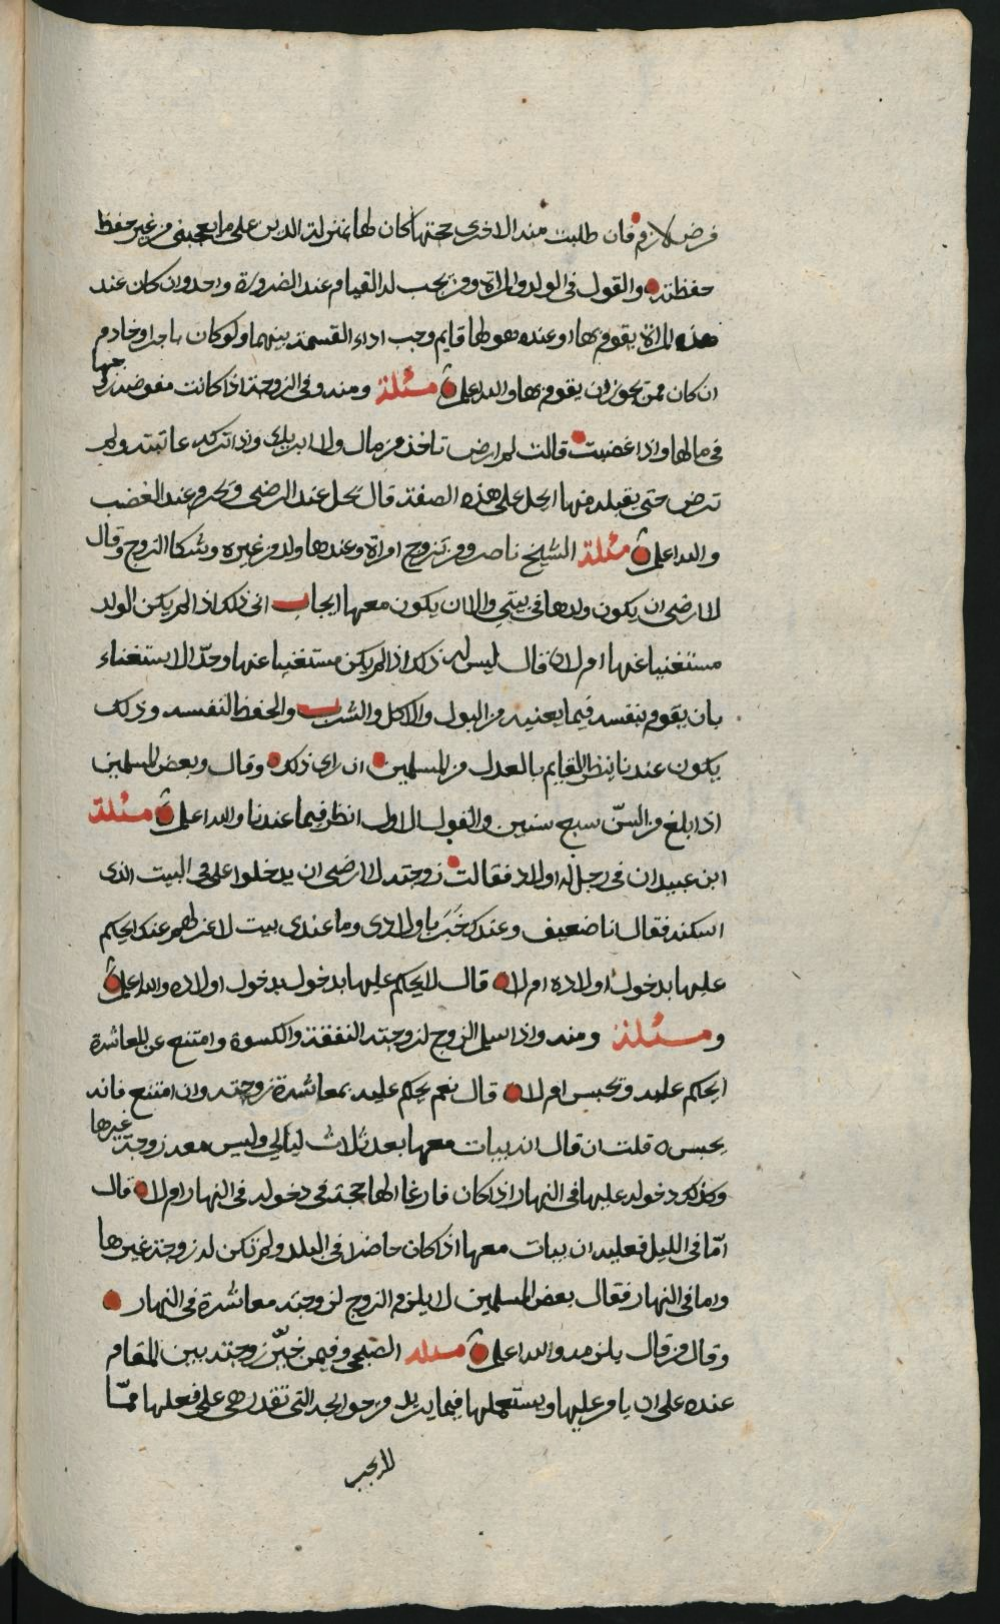 فرض لازم فان طلبت منه الاخرى حجتها كان لها بمنزلة الدين على ما يعجبني من غير حفظ
حفظته والقول في الولد والمراة ومن يجب له القيام عند الضرورة واحد وان كان عند
هذه المراة يقوم بها او عنده هو لها قايم وجب اداء القسمة بينهما ولو كان باجر او خادم
ان كان ممن يجوز ان يقوم بها والله اعلم مسئلة ومنه وفي الزوجة اذا كانت مفوضة زوجها
في مالها واذا غضبت قالت لم ارض تاخذ من مالي ولا ابريك واذا تركه عاتبته ولم
ترض حتى يقبله منها ايحل على هذه الصفة قال يحل عند الرضى ويحرم عند الغضب
والله اعلم مسئلة الشيخ ناصر ومن تزوج امراة وعندها ولد من غيره وشكا الزوج وقال
لا ارضى ان يكون ولدها في بيتي والا ان يكون معها ايجاب الى ذلك اذا لم يكن الولد
مستغنيا عنها ام لا قال ليس له ذلك اذا لم يكن مستغنيا عنها وحد الاستغناء
بان يقوم بنفسه فيما يعنيه من البول والاكل والشرب والحفظ لنفسه وذلك
يكون عندنا بنظر القايم بالعدل من المسلمين ان راى ذلك وقال وبعض المسلمين
اذا بلغ من السن سبع سنين والقول الاول انظر فيما عندنا والله اعلم مسئلة
ابن عبيدان في رجل له اولاد فقالت زوجته لا ارضى ان يدخلوا علي في البيت الذي
اسكنه فقال انا ضعيف وعندك خبر باولادي وما عندي بيت لاعزلهم عنك ايحكم
عليها بدخول اولاده ام لا قال لا يحكم عليها بدخول بدخول اولاده والله اعلم
ومسئلة ومنه واذا سلم الزوج لزوجته النفقة والكسوة وامتنع عن المعاشرة
ايحكم عليه ويحبس ام لا قال نعم يحكم عليه بمعاشرة زوجته وان امتنع فانه
يحبس قلت ان قال انه يبات معها بعد ثلاث ليالي وليس معه زوجة غيرها
وكذلك دخوله عليها في النهار اذا كان فارغا الها حجة في دخوله في النهار ام لا قال
اما في الليل فعليه ان يبات معها اذا كان حاضرا في البلد ولم تكن له زوجة غيرها
واما في النهار فقال بعض المسلمين لا يلزم الزوج لزوجته معاشرة في النهار
وقال من قال يلزمه والله اعلم مسئلة الصبحي وفيمن خير زوجته بين المقام
عنده على ان يامر عليها ويستعملها فيما يريد من حوايجه التي تقدر هي على فعلها مما
لا يجب